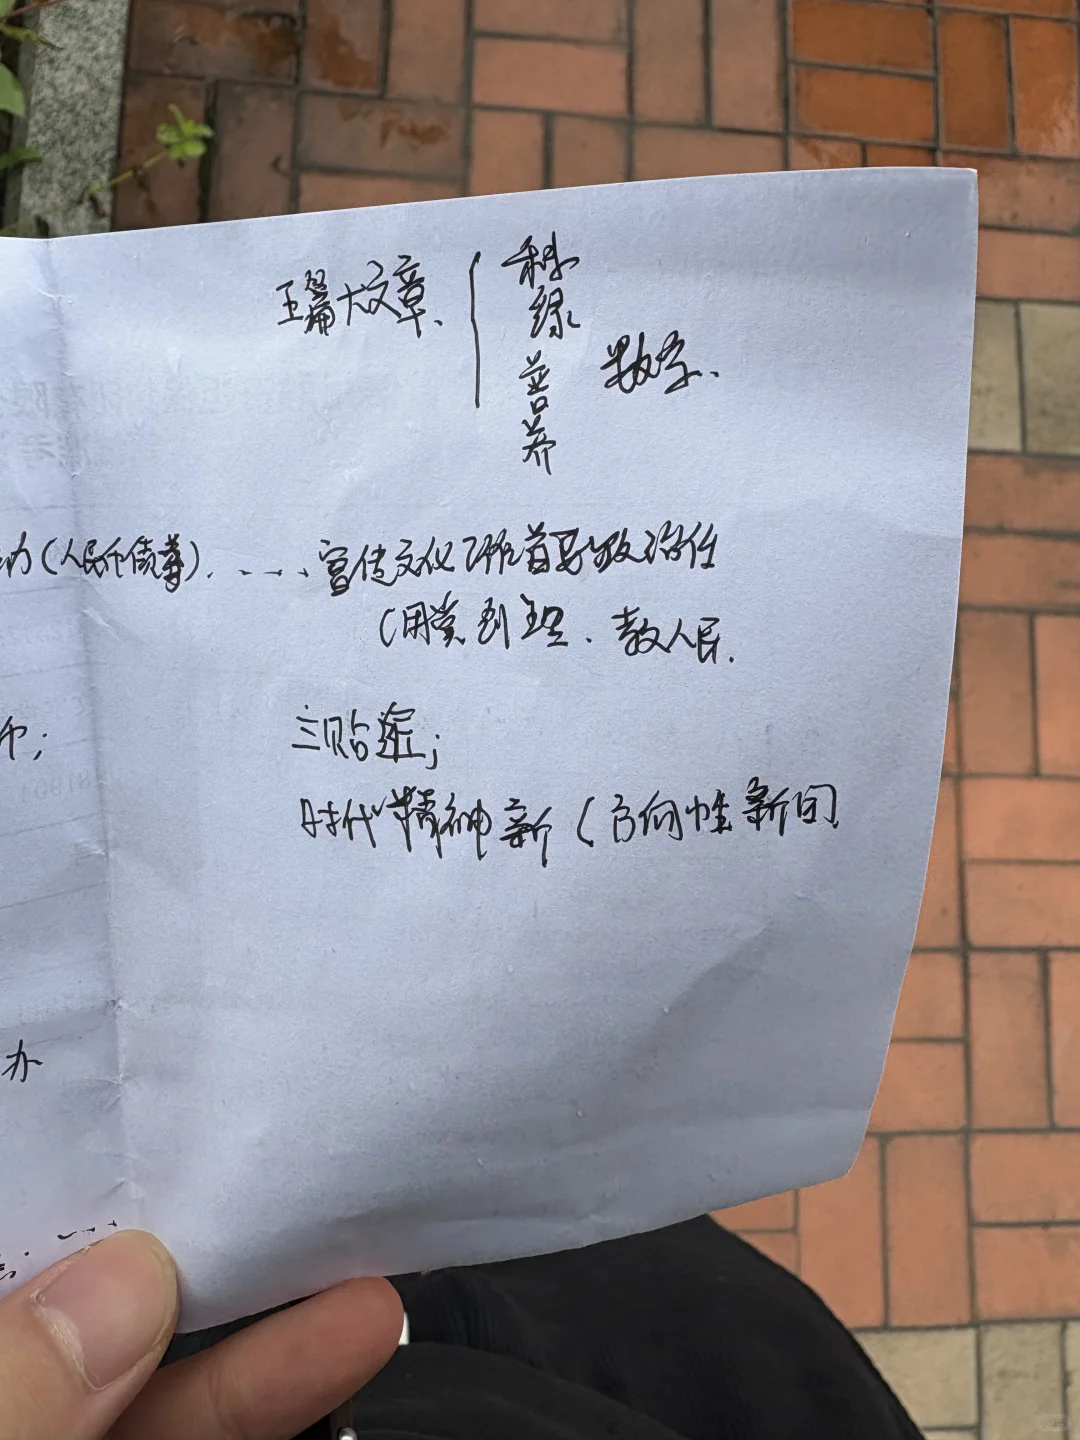 五篇大文章、
科
绿
普 数字、
养
力(人民币债券)、
宣传文化工作首要政治任
(用党 创理、教人民.
币;
三贴近;
时代精神新(方向性新闻
办